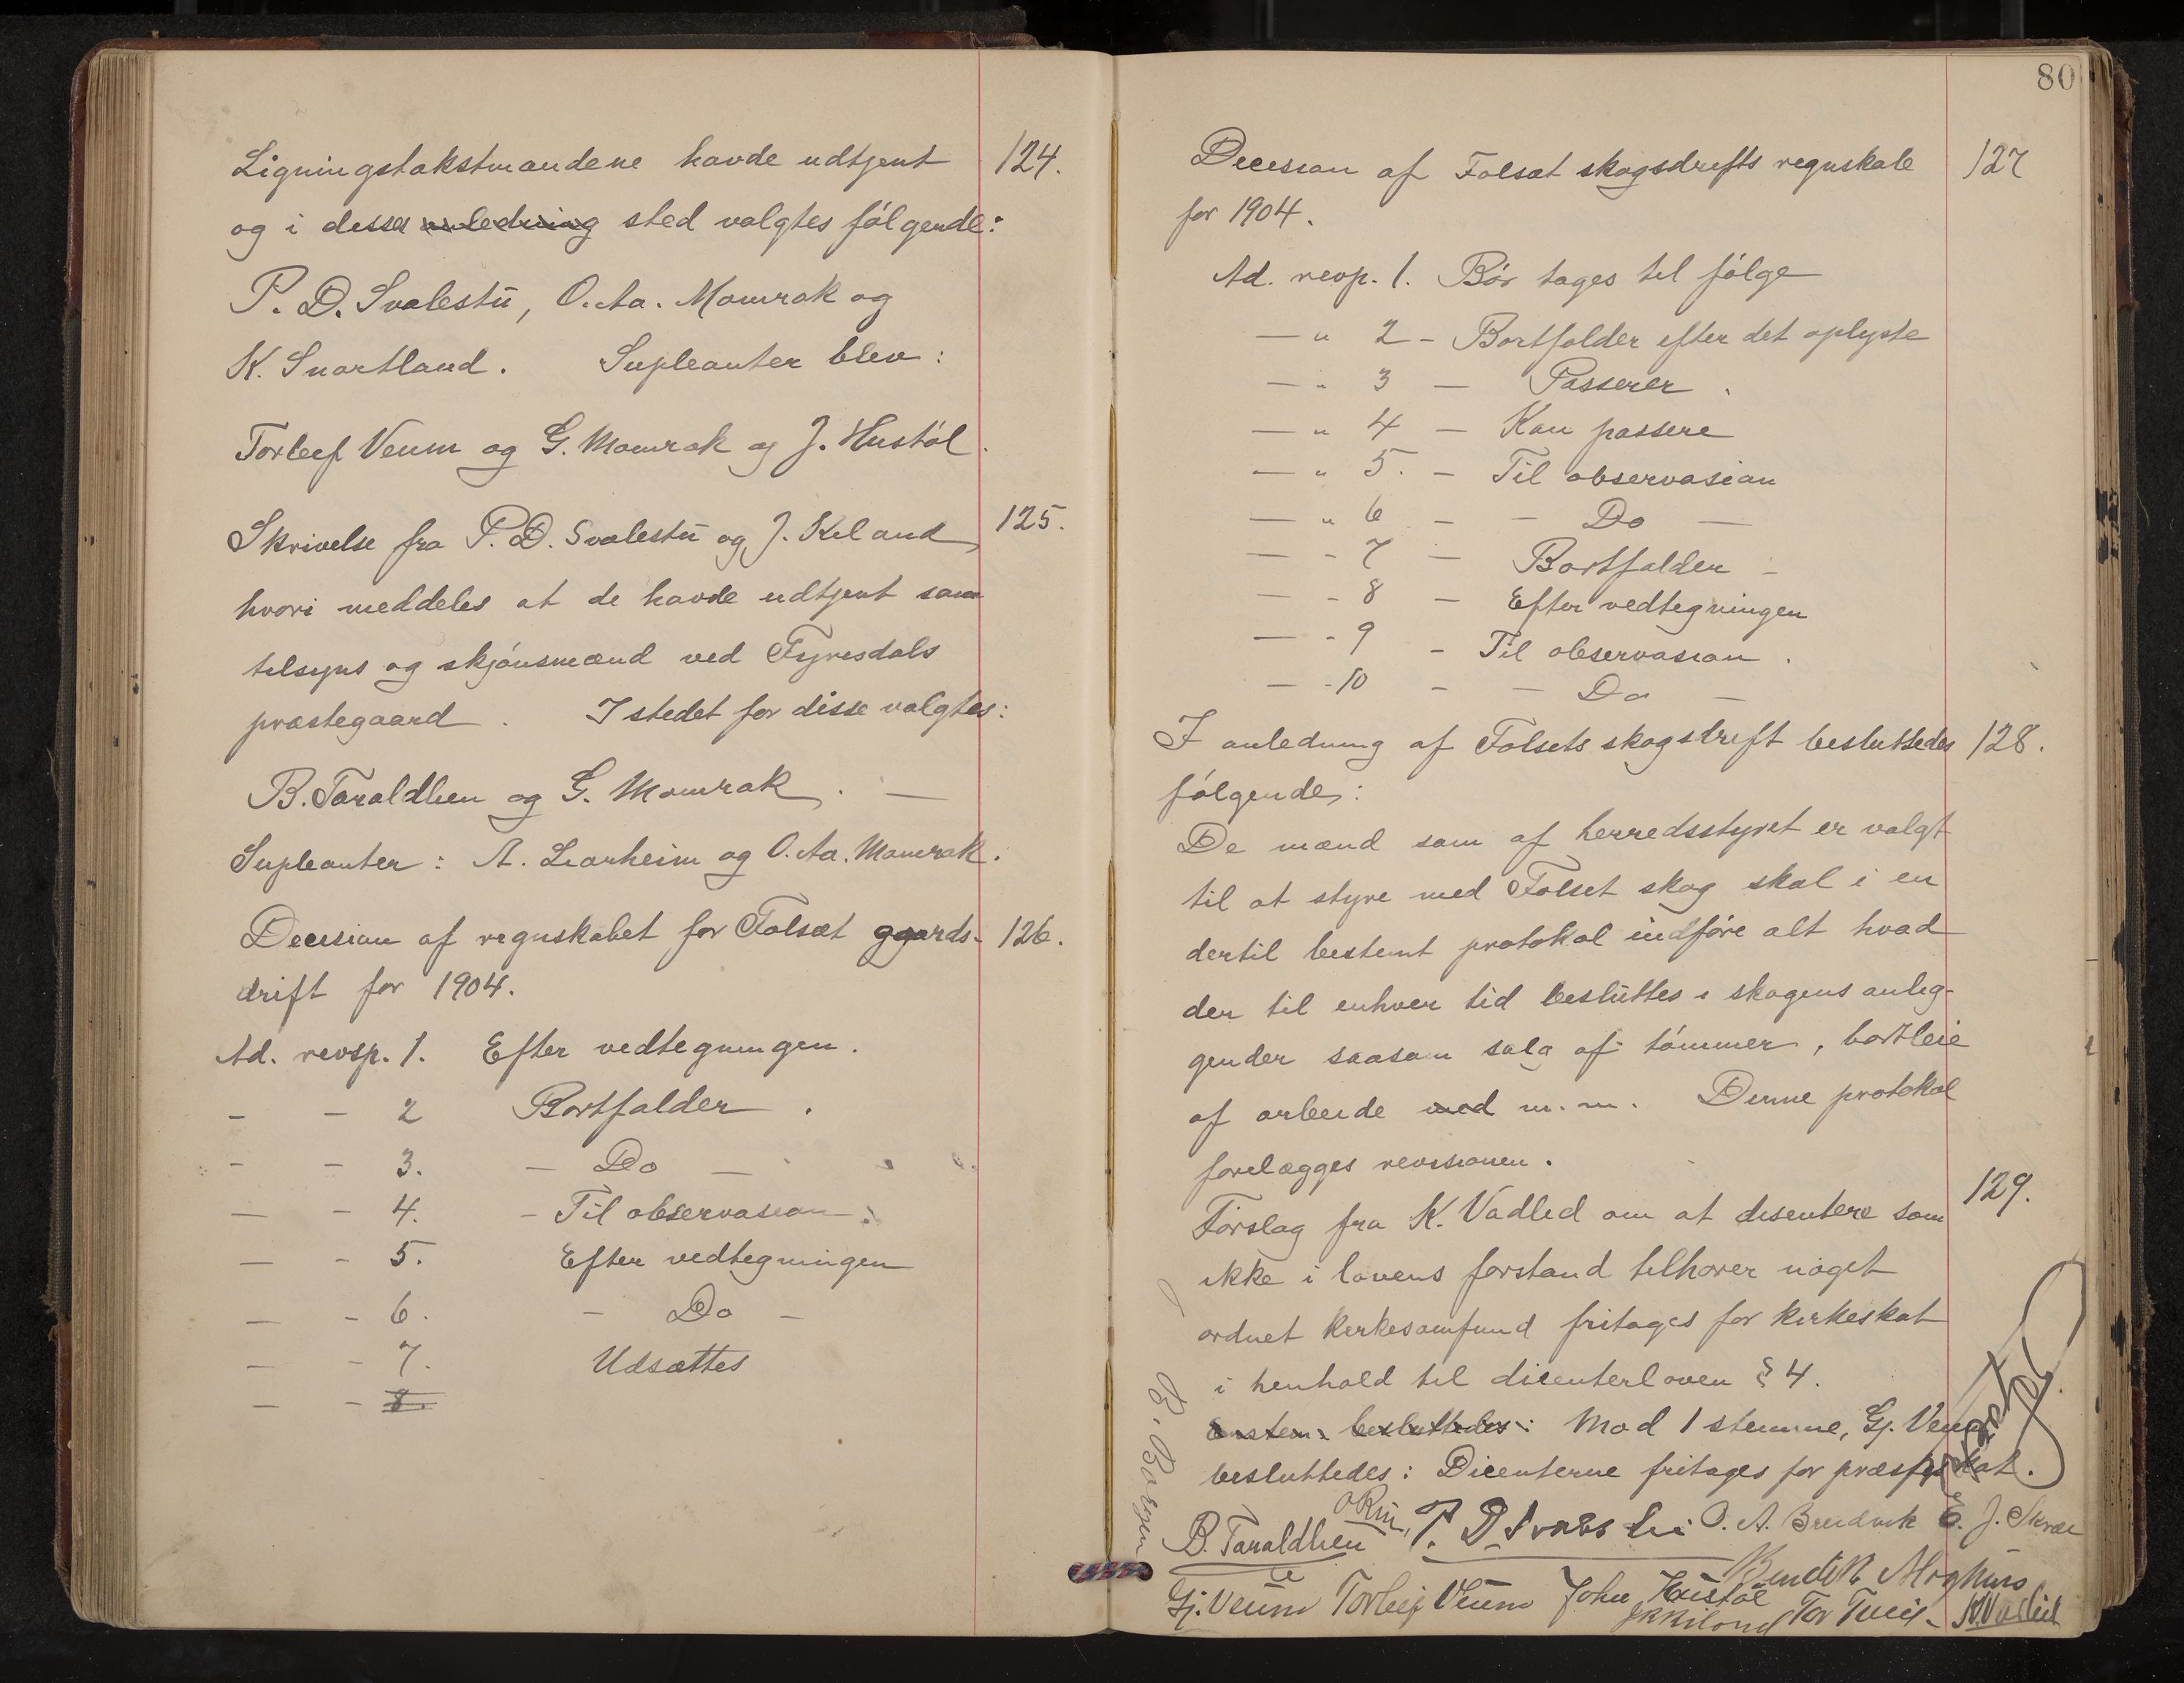 Ligningstakstmændene havde udtjent 124.
og i disses anledning sted valgtes følgende:
P. D. Svalestu, O. Aa. Momrak og
K. Snartland. Supleanter blev:
Torleif Veum og G. Momrak og J. Hustøl.
Skrivelse fra P. D. Svalestu og J. Kiland 125.
hvori meddeles at de havde udtjent som
tilsyns og skjønsmænd ved Fyresdals
præstegaard. I stedet for disse valgtes:
B. Taraldlien og G. Momrak. —
Supleanter: A. Liarheim og O. Aa. Momrak.
Decision af regnskabet for Folsæt gaards- 126.
drift for 1904.
Ad. revsp. 1. Efter vedtegningen.
- - 2 Bortfalder.
- - 3. — Do —
— - 4. - Til observasion -
— - 5. Efter vedtegningen
— - 6. - Do -
— - 7. Udsættes
— - 8.
80
Decision af Folsæt skogsdrifts regnskab 127
for 1904.
Ad. revp. 1. Bør tages til følge
— " 2 - Bortfalder efter det oplyste
— " 3 — Passerer.
— " 4 — Kan passere
— " 5. - Til observasion
— " 6 - - Do —
— - 7 — Bortfalder -
— - 8 — Efter vedtegningen
— - 9 - Til observasion.
— - 10 - - Do -
I anledning af Folsets skogsdrift besluttedes 128.
følgende:
De mænd som af herredsstyret er valgt
til at styre med Folset skog skal i en
dertil bestemt protokol indføre alt hvad
der til enhver tid besluttes i skogens anlig-
gender saasom salg af tømmer, bortleie
af arbeide med m. m. Denne protokol
forelægges revisionen.
129.
Forslag fra K. Vadlid om at disentere som
ikke i lovens forstand tilhører noget
ordnet kirkesamfund fritages for kirkeskat
i henhold til dicenterloven § 4.
Enstem. besluttedes: Mod 1 stemme, Gj. Veum
besluttedes: Dicenterne fritages for præsteskat.
B. Taraldlien P. D. Svalestu O. A. Breidvik E. J. Skræi
Gj. Veum Torleif Veum John Hustøl
J K Kiland K. Vadlid